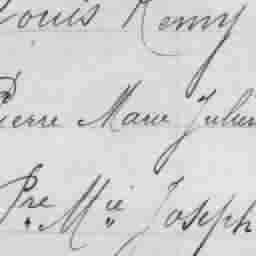 Louis Remy
Pierre Marie Julien
Pre Mie Joseph